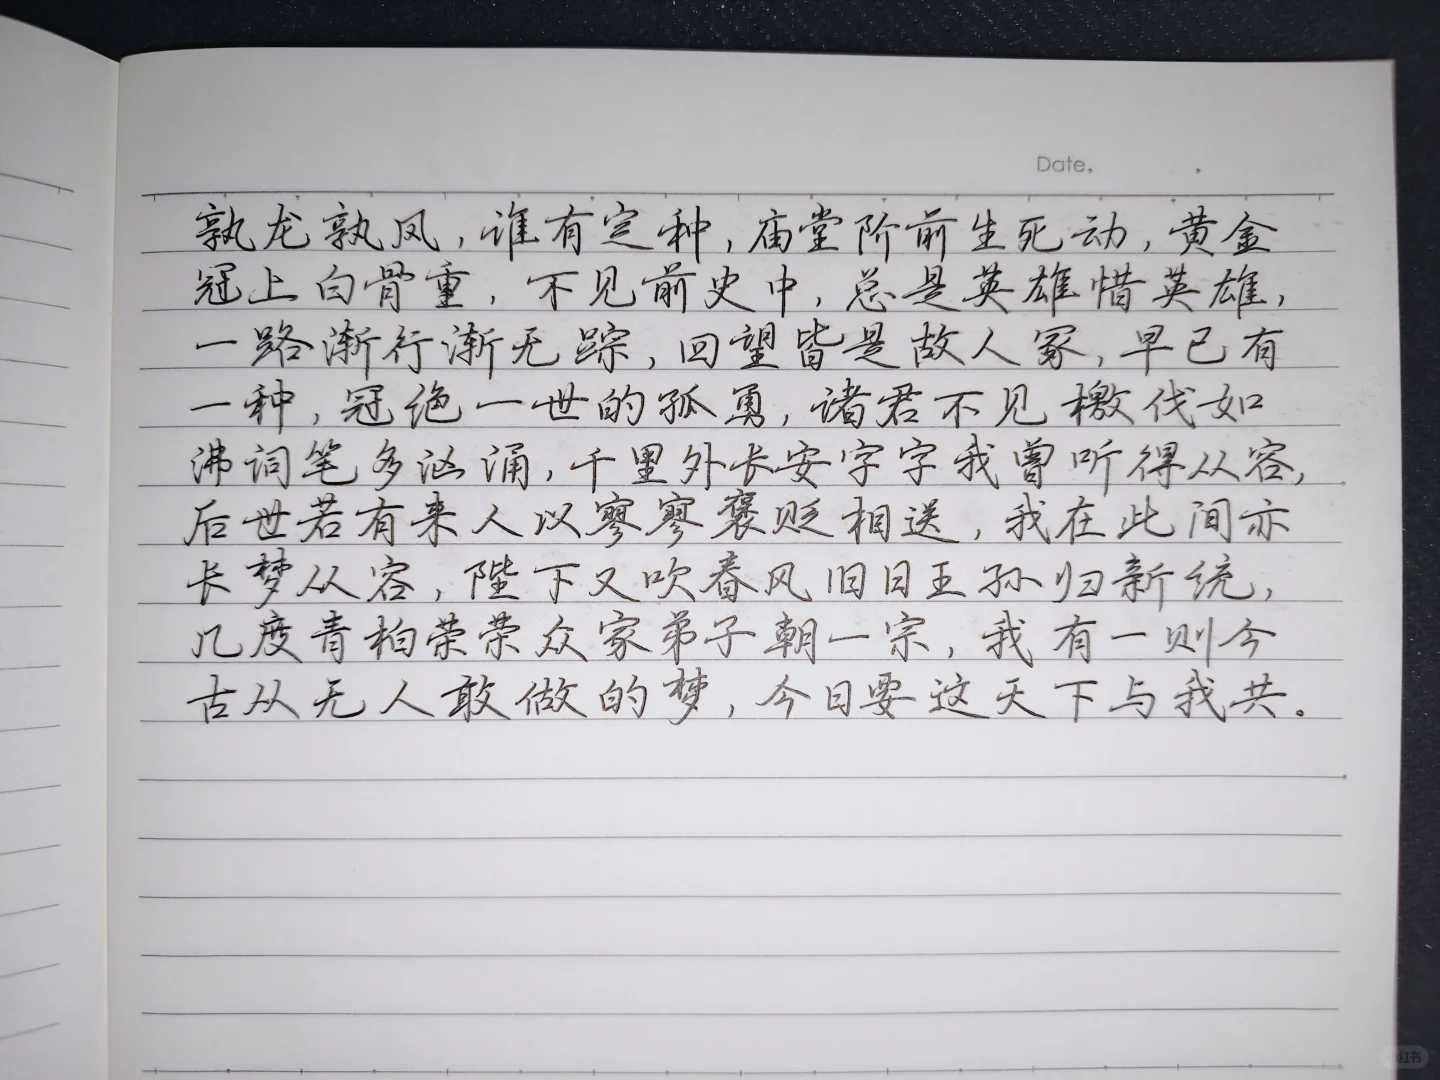 Date.
孰龙孰凤,谁有定种,庙堂阶前生死动,黄金
冠上白骨重,不见前史中,总是英雄惜英雄,
一路渐行渐无踪,回望皆是故人冢,早已有
一种,冠绝一世的孤勇,诸君不见檄伐如
沸词笔多汹涌,千里外长安字字我曾听得从容,
后世若有来人以寥寥褒贬相送,我在此间亦
长梦从容,陛下又吹春风旧日王孙归新统,
几度青柏荣荣众家弟子朝一宗,我有一则今
古从无人敢做的梦,今日要这天下与我共.
小红书